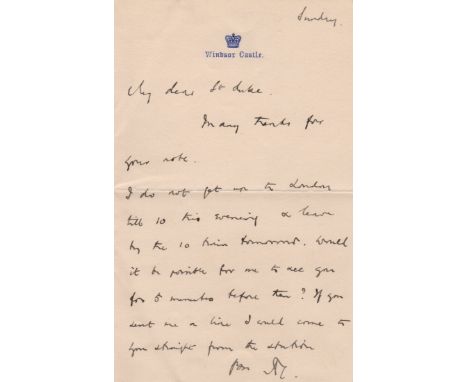 Sunday.
Windsor Castle.
My dear St Luke.
Many thanks for
your note.
I do not get up to London
till 10 this evening & leave
by the 10 train tomorrow. Would
it be possible for me to see you
for 5 minutes before then? If you
sent me a line I would come to
you straight from the station